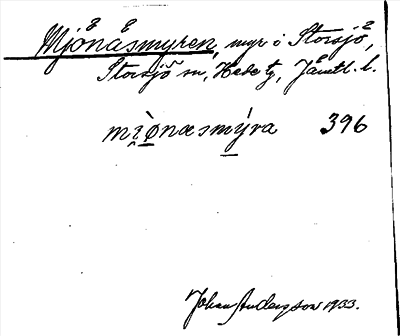 Mjönåsmyren, myr i Storsjö,
Storsjö sn, Hede tg, Jämtl. l.
mi̯ònæsmýra 396
Johan Anderson 1933.